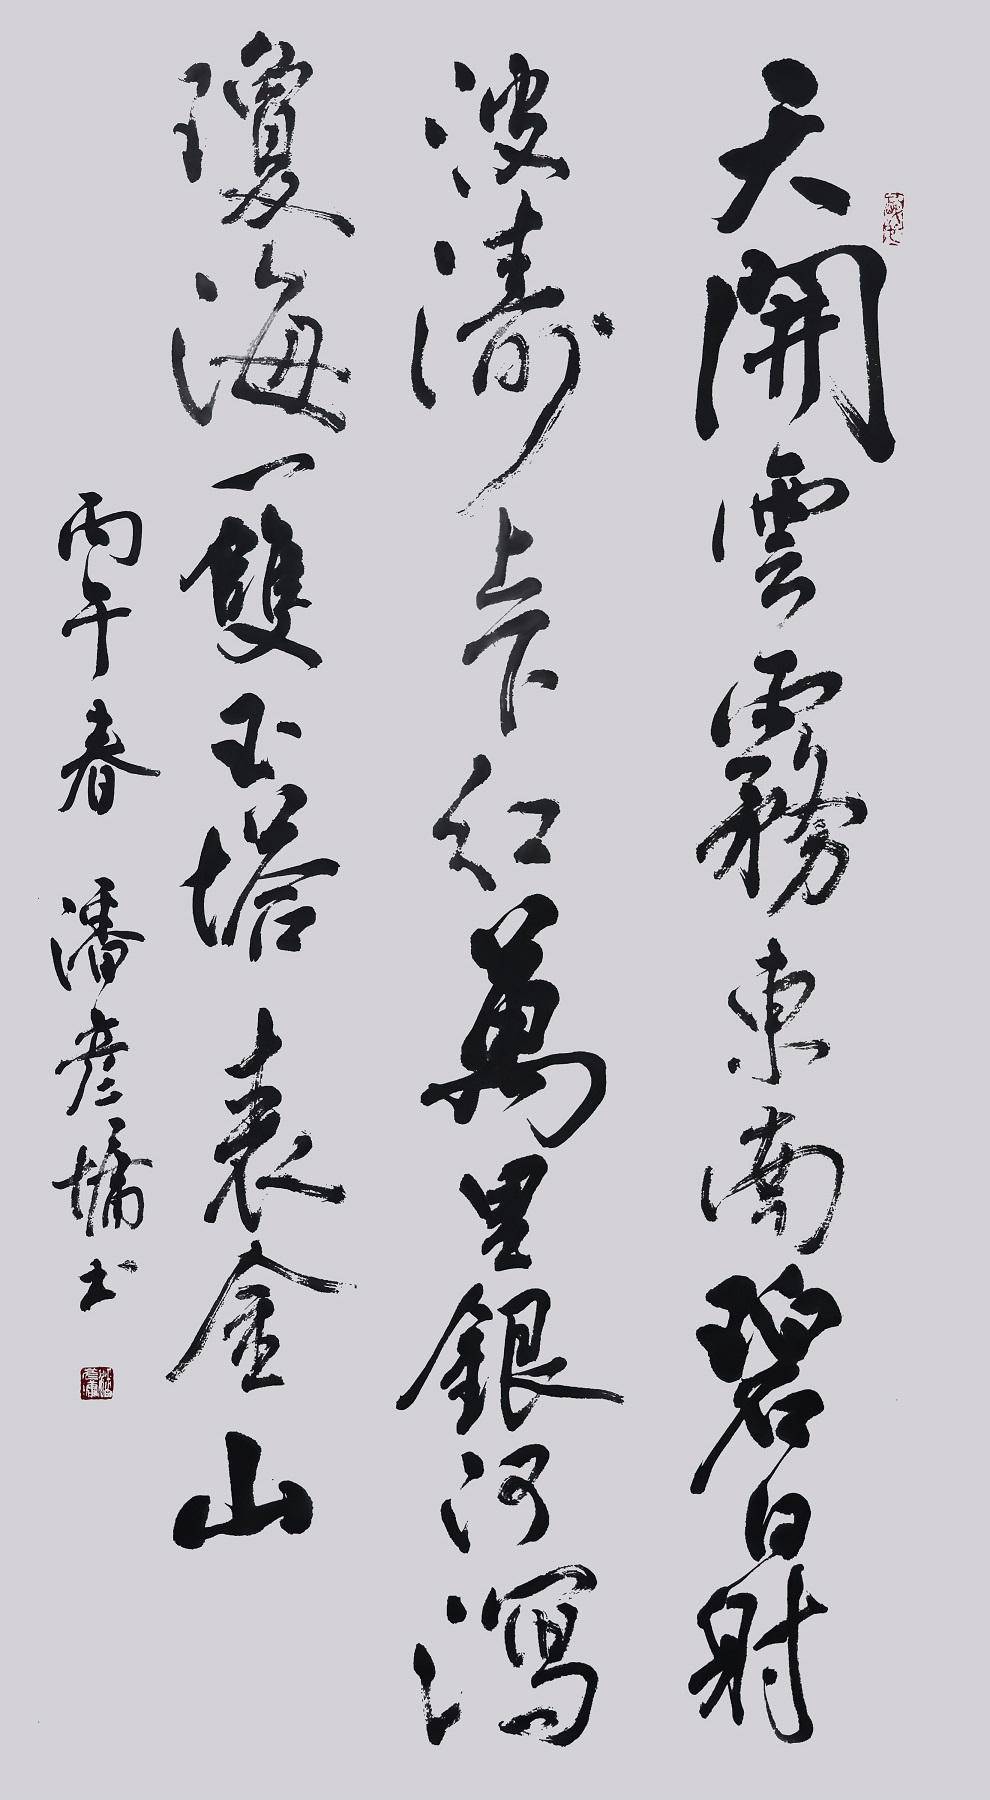 天開雲霧東南碧日射
波濤上下紅萬里銀河瀉
瓊海一雙玉塔表金山
丙午春 潘彥墉書